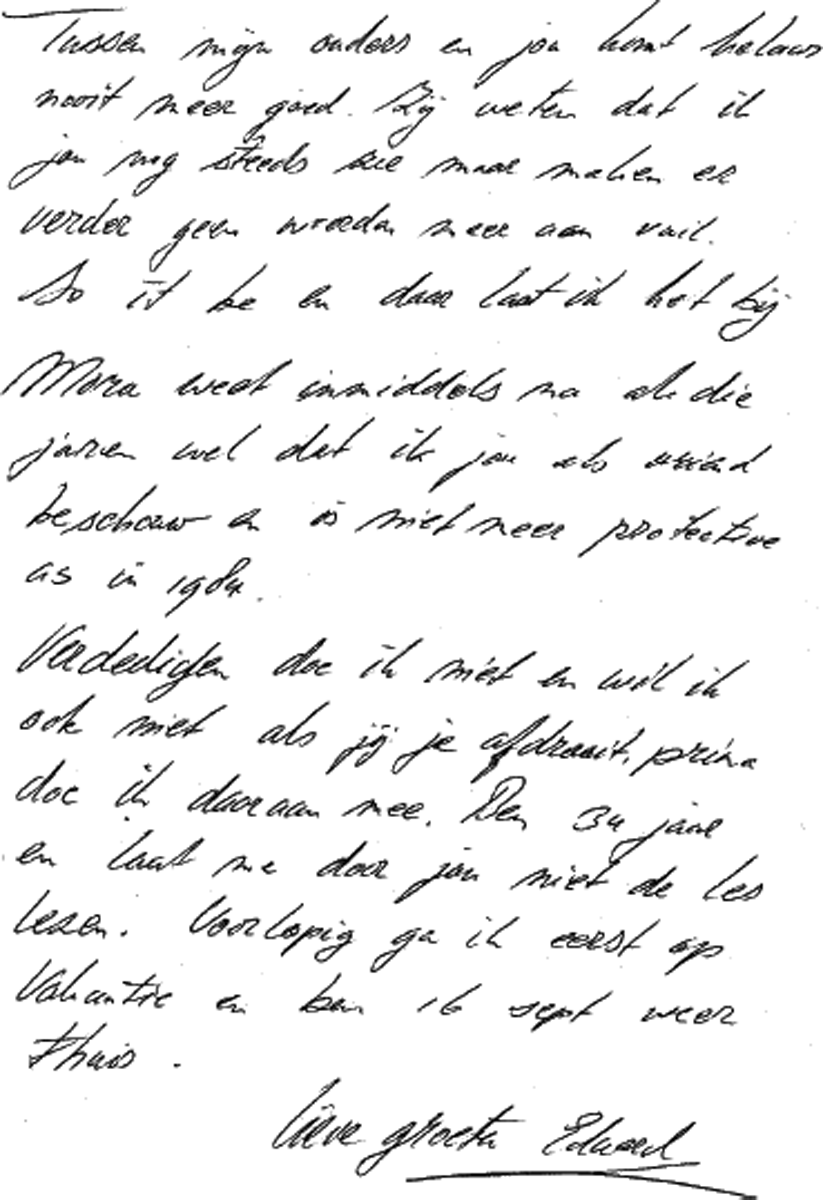 Tussen mijn ouders en jou komt helaas
nooit meer goed. Zij weten dat ik
jou nog steeds zie maar maken er
verder geen woorden meer aan vuil.
So it be en daar laat ik het bij
Mona weet inmiddels na al die
jaren wel dat ik jou als vriend
beschouw en is niet meer protective
as in 1984.
Verdedigen doe ik niet en wil ik
ook niet als jij je afdraait, prima
doe ik daaraan mee. Ben 34 jaar
en laat me door jou niet de les
lezen. Voorlopig ga ik eerst op
Vakantie en ben 16 sept weer
thuis.
Lieve groeten Edward